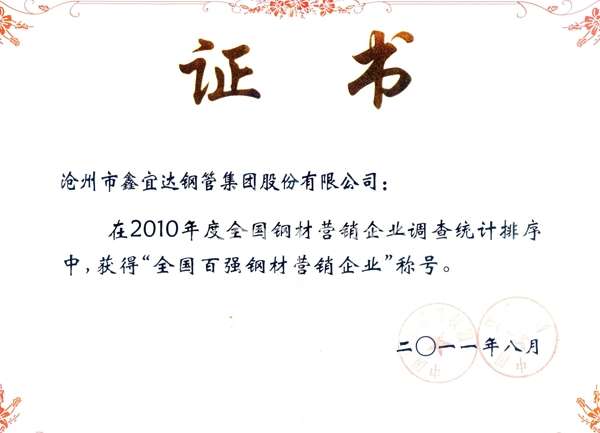 证书
沧州市鑫宜达钢管集团股份有限公司：
在2010年度全国钢材营销企业调查统计排序
中，获得“全国百强钢材营销企业”称号。
二〇一一年八月